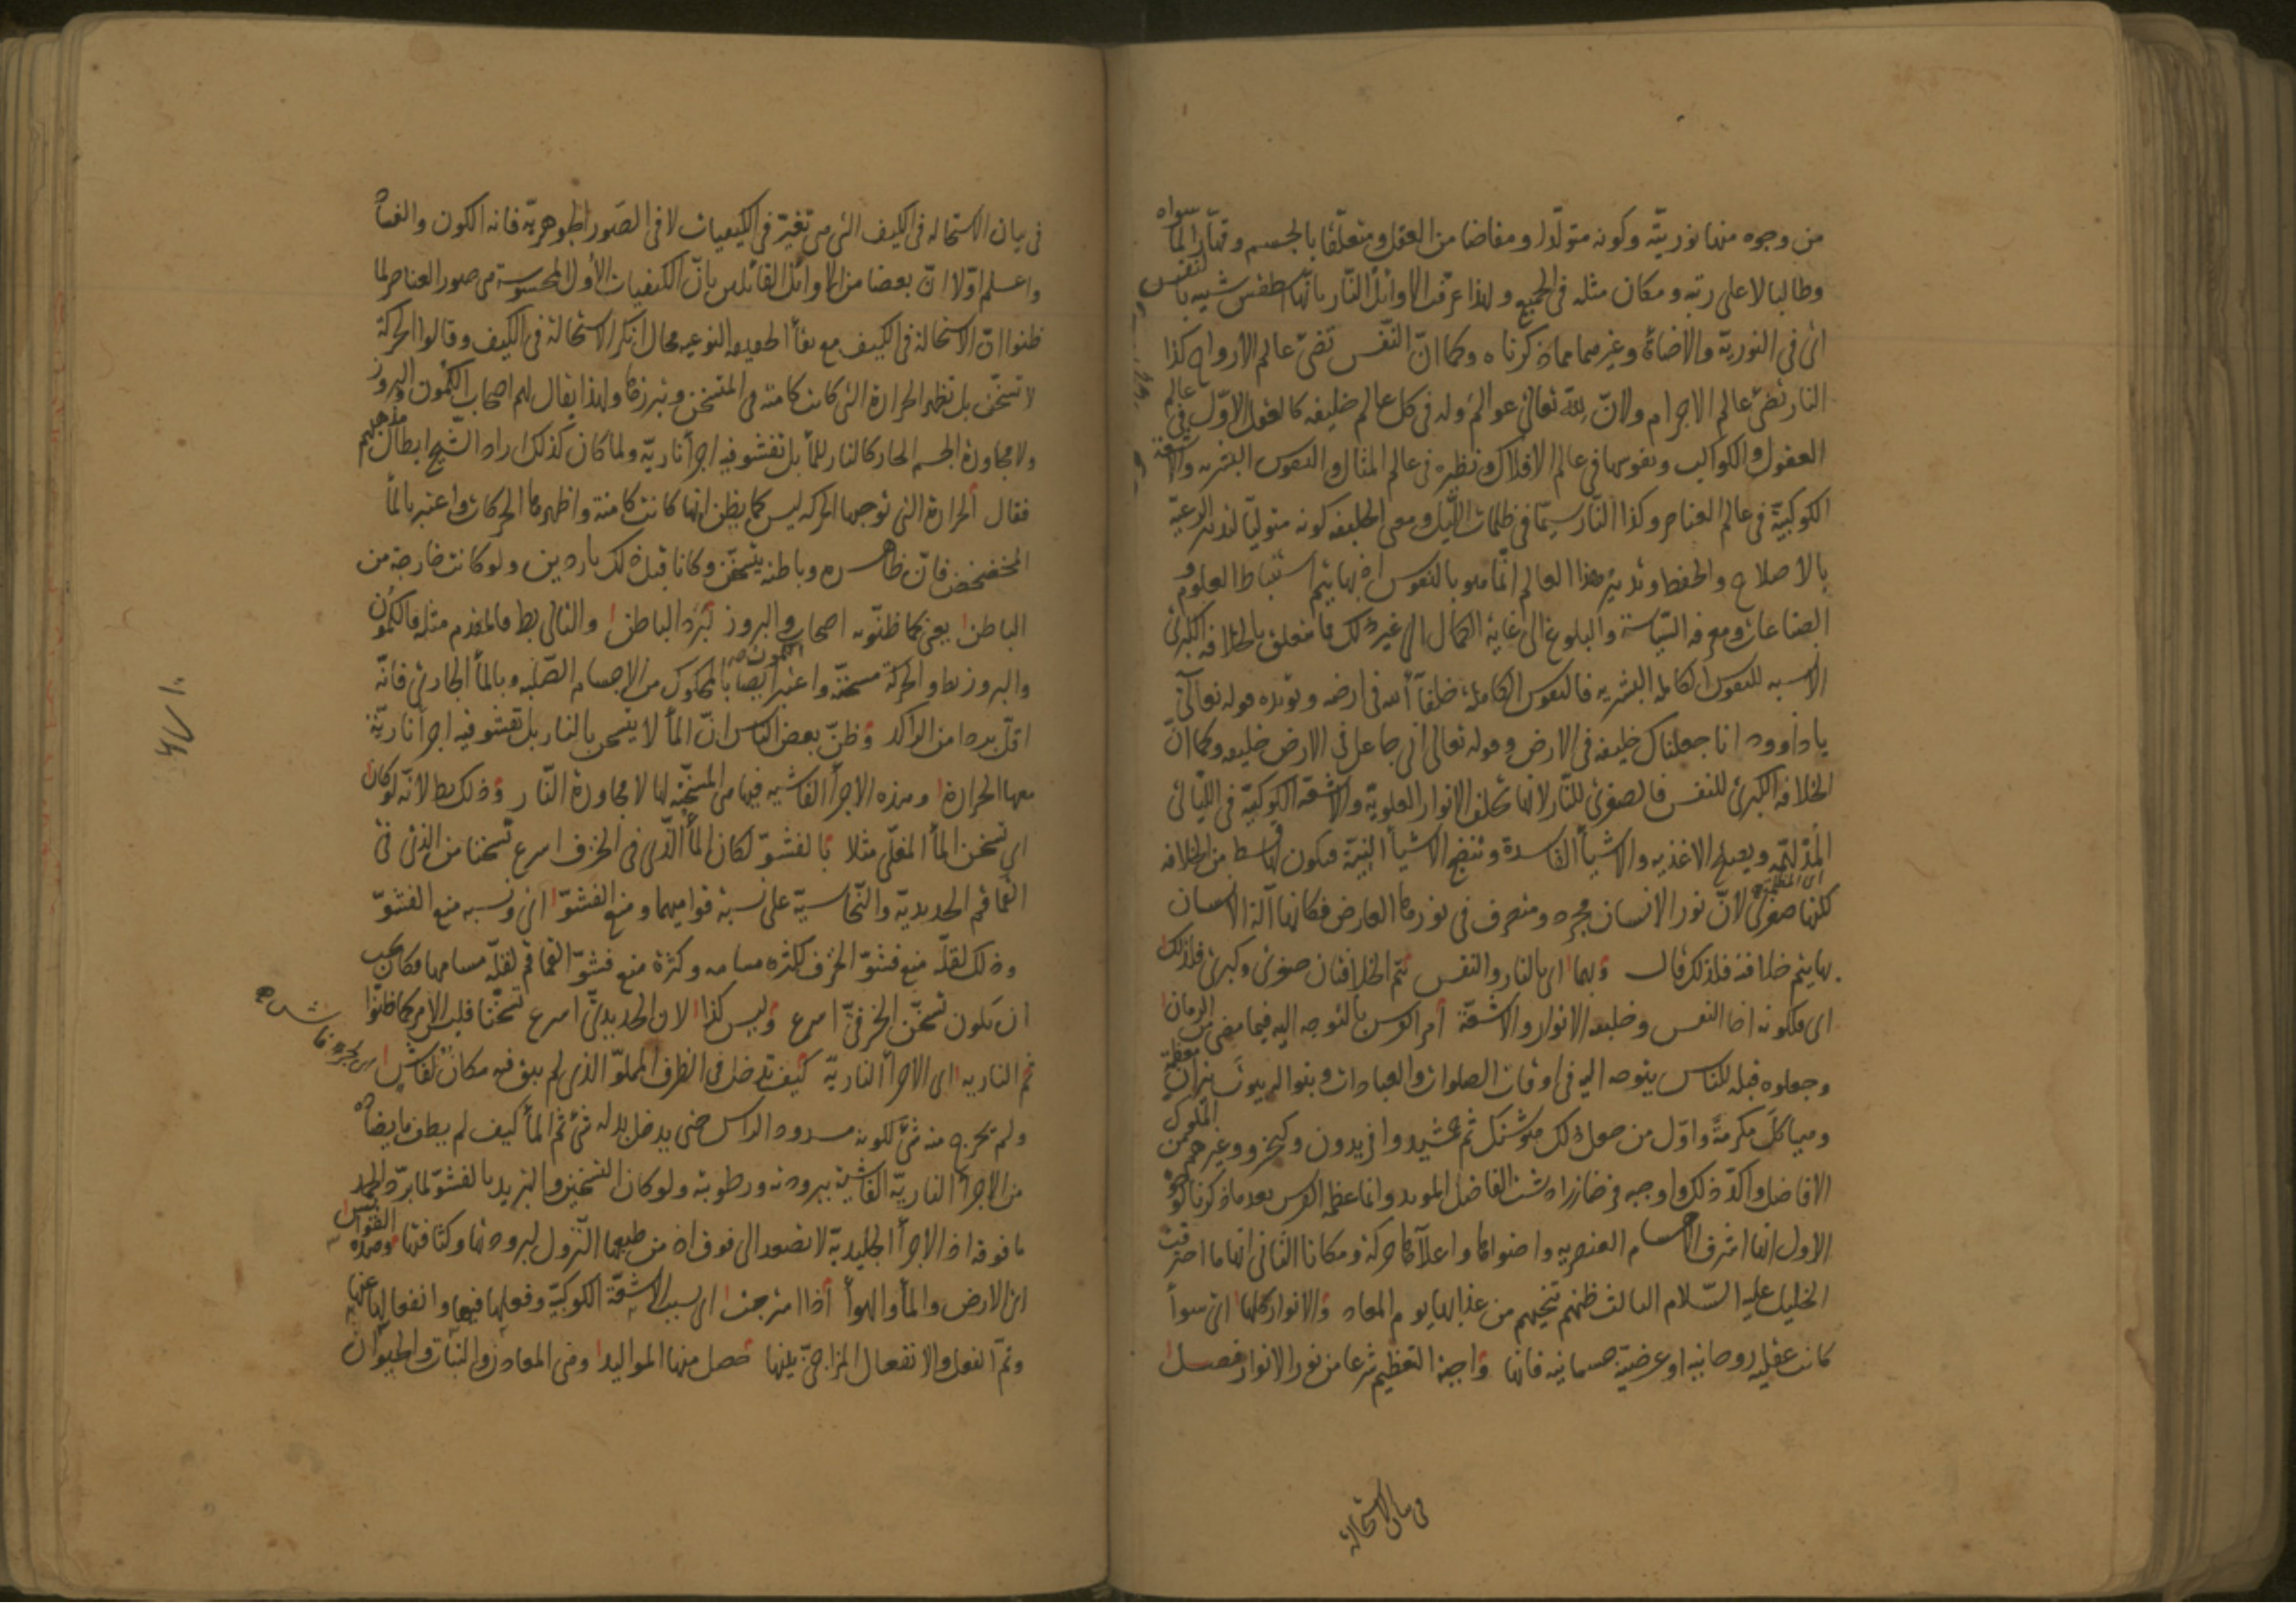 من وجوه منها نوريّته وكونه متولّدا ومفاضا من العقل ومتعلّقا بالجسم وقهّارا لما سواه
وطالبا لاعلى رتبه ومكان مثله فى الجميع ولهذا عرّفت الاوائل النّار بانّها اسطقس شبيه بالنفس
اى فى النورية والاضاءة وغيرهما مما ذكرناه وكما انّ النّفس تضئ عالم الارواح كذا
النار تضئ عالم الاجرام ولانّ للّه تعالى عوالم وله فى كل عالم خليفه كالعقل الاوّل فى عالم
العقول والكواكب ونفوسها فى عالم الافلاك ونظيره فى عالم المثال والنفوس البشريه والاشعّة
الكوكبيّة فى عالم العناصر وكذا النّار سيّما فى ظلمات اللّيل ومعنى الخليفه كونه متوليّا لتدبير الرعيّة
بالاصلاح والحفظ وتدبير هذا العالم انّما هو بالنفوس اذ بها يتم استنباط العلوم و
الصناعات ومعرفه السّياسة والبلوغ الى غاية الكمال الى غير ذلك مما يتعلق بالخلافه الكبرى
للنفوس الكامله البشريه فالنفوس الكاملة خلفآ الله فى ارضه ويؤيده قوله تعالى
ياداوود انا جعلناك خليفه فى الارض وقوله تعالى انى جاعل فى الارض خليفه وكما انّ
الخلافه الكبرى للنفس فالصغرى للنّار لانها تخلف الانوار العلويّة والاشعّه الكوكبيّة فى اللّيالى
المدلهمّه ويصلح الاغذيه والاشيآ الفاسدة وتنضج الاشيآ النيّة فيكون لها قسط من الخلافه
اى المظلمة
لكنها صغرى لانّ نور الانسان مجرد ومتصرف فى نورها العارض فكانها آلة الانسان
بها يتم خلافته فلذلك قال وبهما اى بالنار والنفس تتم الخلافتان صغرى وكبرى فلذلك
اى فلكونه اخا النفس وخليفه الانوار والاشعّة امر الفرس بالتوجه اليه فيما مضى من الزمان
وجعلوه قبله للناس يتوجه اليه فى اوقات الصلوات والعبادات وبنوا له بيوت نيران معظمة
وهياكل مكرمة واوّل من جعل ذلك هوشنك ثم جمشيد وافريدون وكيخسرو وغيرهم من الملوك
الافاضل واكدّ ذلك واوجبه فى زرادشت الفاضل المويد وانما عظمه الفرس بعد ما ذكرنا لوجوه
الاول انها اشرف الاجسام العنصريه واضواها واعلاها حركة ومكانا الثانى انها ما احرقت
الخليل عليه السّلام الثالث ظنهم تنجيهم من عذابها يوم المعاد والانوار كلها اى سوآ
كانت عقليه روحانيه او عرضيّة جسمانيه فانها واجبة التعظيم شرعا من نور الانوار فصل
فى بيان الاستحالة
فى بيان الاستحاله فى الكيف التى هى تغيّر فى الكيفيات لا فى الصّور الجوهريّة فانه الكون والفساد
واعلم اوّلا انّ بعضا من الاوائل القائلين بانّ الكيفيات الأول المحسوسة هى صور العناصر لما
ظنوا انّ الاستحالة فى الكيف مع بقآ الحقيقه النوعيه محال انكر الاستحالة فى الكيف وقالوا الحركة
لا تسخّن بل تظهر الحرارة التى كانت كامنة فى المتسخّن وتبرزها ولهذا يقال لهم اصحاب الكمون والبروز
ولا مجاورة الجسم الحار كالنار للمآ بل تفشو فيه اجزآ ناريّة ولما كان كذلك اراد الشّيخ ابطال مذهبهم
فقال الحرارة التى توجبها الحركه ليس كما يظن انها كانت كامنة واظهرها الحركات واعتبر بالمآ
المخضخض فانّ ظاهره وباطنه يتسخّن وكانا قبل ذلك باردين ولو كانت خارجة من
الباطن يعنى كما ظنّوه اصحاب الكمون والبروز لبرد الباطن والتالى بط فالمقدم مثله فالكمون
والبروز بط والحركة مسخنة واعتبر ايضا بالمحكوك من الاجسام الصّلبه وبالمآ الجارى فانّه
اقلّ بردا من الراكد وظنّ بعض النّاس انّ المآ لا يتسخن بالنار بل تفشو فيه اجزآ ناريّة
معها الحرارة وهذه الاجزآ الفاشيه فيها هى المسخّنه لها لا مجاورة النّار وذلك بط لانّه لو كان
اى تسخّن المآ المغلى مثلا بالفشوّ لكان المآ الّذى فى الخزف اسرع تسخّنا من الذى فى
القماقم الحديديّة والنّحاسيّة على نسبة قواميهما ومنع الفشوّ اى ونسبه منع الفشوّ
وذلك لقلّه منع فشوّ الخزف لكثره مسامه وكثرة منع فشوّ القماقم لقلّه مسامها فكان يجب
ان يكون تسخّن الخزفىّ اسرع وليس كذا لان الحديدىّ اسرع تسخّنا فليس الأمر كما ظنّوا
ثم الناريه اى الاجزآ الناريّة كيف تدخل فى الظرف المملوّ الذى لم يبق فيه مكان لفاش
ولم يخرج منه شئ لكونه مسدود الراس حتى يدخل بدله شئ ثم المآ كيف لم يطف ما يضاده
من الاجزآ الناريّة الفاشية ببرودته ورطوبته ولو كان التسخين والتبريد بالفشوّ لما برّد الجمد
ما فوقه اذ الاجزآ الجليديّة لا تصعد الى فوق اذ من طبعها النّزول لبرودتها وكثافتها
اى الارض والمآ والهوآ اذا امتزجت اى بسبب الاشعّة الكوكبيّة وفعلها فيها وانفعالها عنها
وتمّ الفعل والانفعال المزاجىّ بينها حصل منها المواليد وهى المعادن والنّبات والحيوان